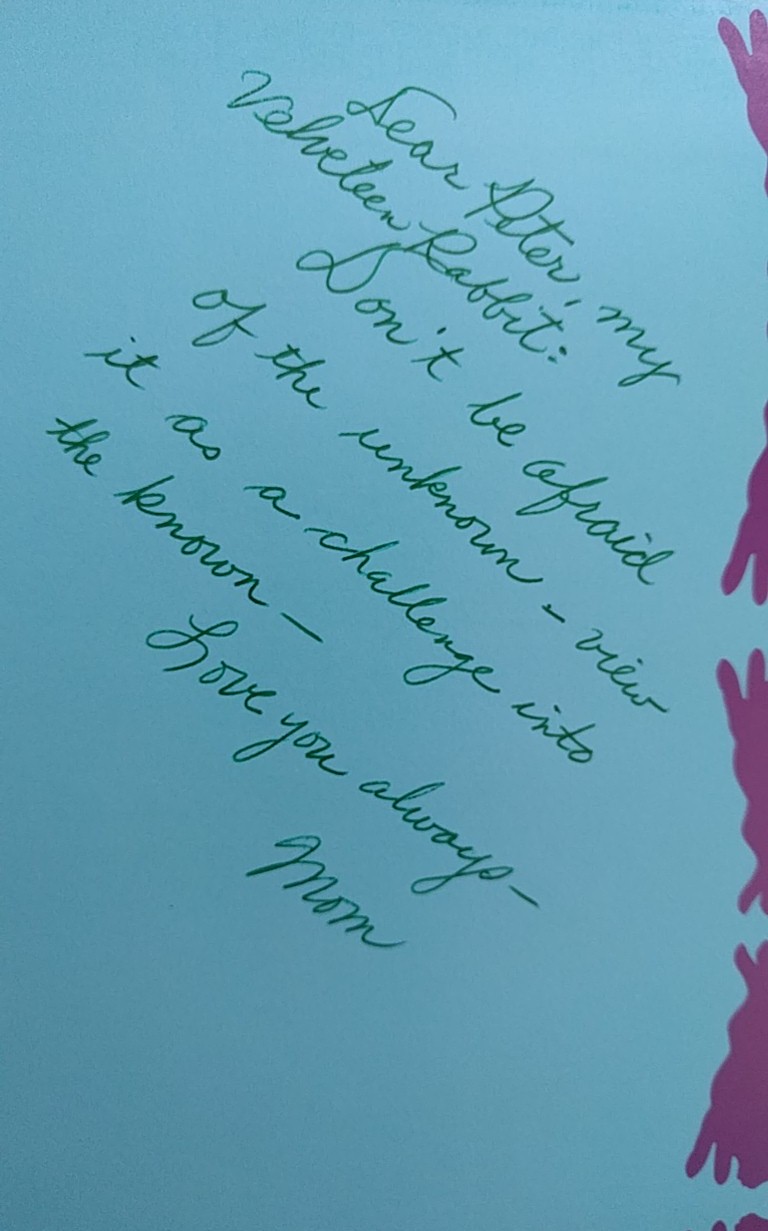 Dear Peter, my
Velveteen Rabbit:
Don't be afraid
of the unknown - view
it as a challenge into
the known —
Love you always —
Mom